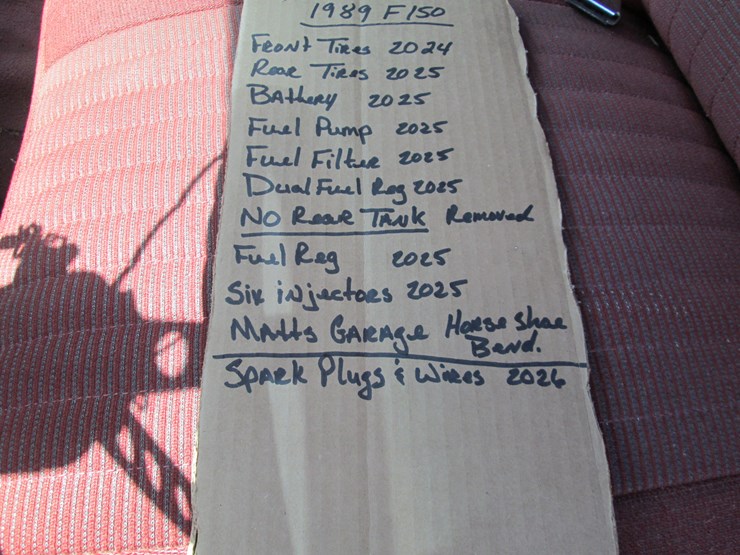 1989 F150
Front Tires 2024
Rear Tires 2025
Battery 2025
Fuel Pump 2025
Fuel Filter 2025
Dual Fuel Reg 2025
NO Rear TANK Removed
Fuel Reg 2025
Six injectors 2025
MAtts GARAge Horse Shoe
Bend.
SPARK Plugs & Wires 2026